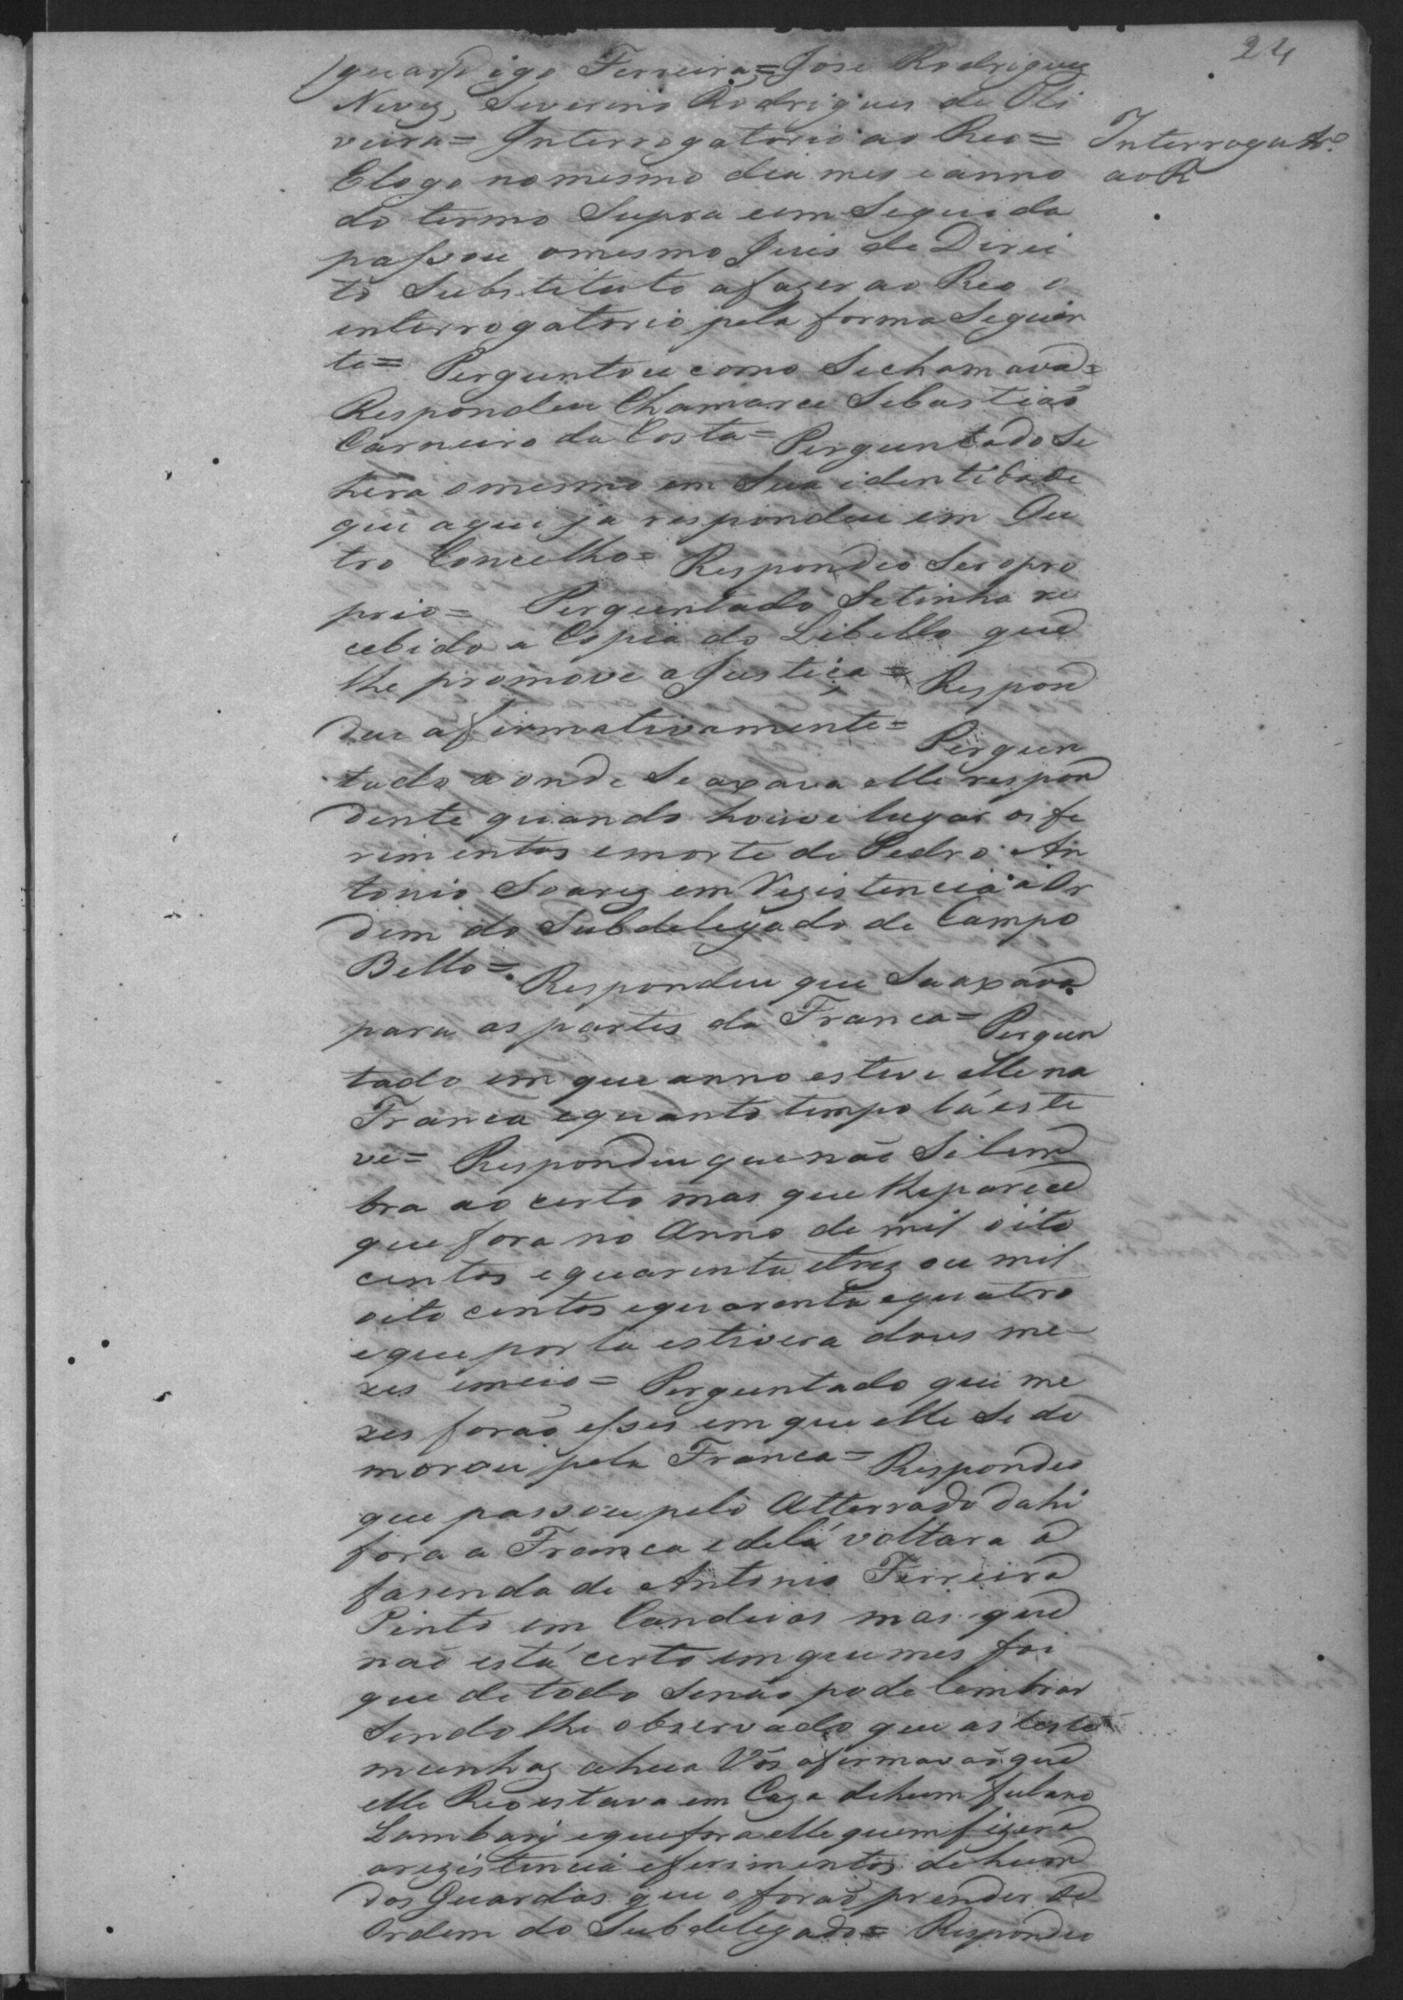 24
(guar) digo Ferreira = Jose Rodrigues
Neves, Severino Rodrigues de Oli
veira = Interrogatorio ao Reo =
Interrogatro.
ao R
E logo no mesmo dia mes e anno
do termo Supra e em Seguida
passou o mesmo Juis de Direi
to Substituto afazer ao Reo o
interrogatorio pela forma Seguin
te = Perguntou como Sechamava =
Respondeu Chamarce Sebastião
Carneiro da Costa = Perguntado Se
hera o mesmo em Sua identidade
que aqui ja respondeu em Ou
tro Concelho = Respondeo Ser o pro
prio = Perguntado Setinha re
cebido a Copia do Libello que
lhe promove a Justiça = Respon
deu afirmativamente = Pergun
tado a onde Se axava elle respon
dente quando houve lugar os fe
rimentos e morte de Pedro An
tonio Soares em Rezistencia a Or
dem do Subdelegado de Campo
Bello = Respondeu que Se axava
para as partes da Franca = Pergun
tado em que anno esteve elle na
Franca e quanto tempo lá este
ve = Respondeu que não Se lem
bra ao certo mas que lhe parece
que fora no Anno de mil oito
centos e quarenta e trez ou mil
oito centos e quarenta e quatro
e que por la estivera dous me
zes e meio = Perguntado que me
zes forão esses em que elle Se de
morou pela Franca = Respondeo
que passou pelo Atterrado dahi
fora a Franca e de lá voltara a
fasenda de Antonio Ferreira
Pinto em Candeias mas que
não está certo em que mes foi
que de todo Senão pode lembrar
Sendo lhe observado que as teste
munhas a hua Vós afirmavão que
elle Reo estava em Caza de hum fulano
Lambary e que fora elle quem fizera
a rezistencia e ferimentos de hum
dos Guardas que o forão prender de
Ordem do Subdelegado = Respondeo